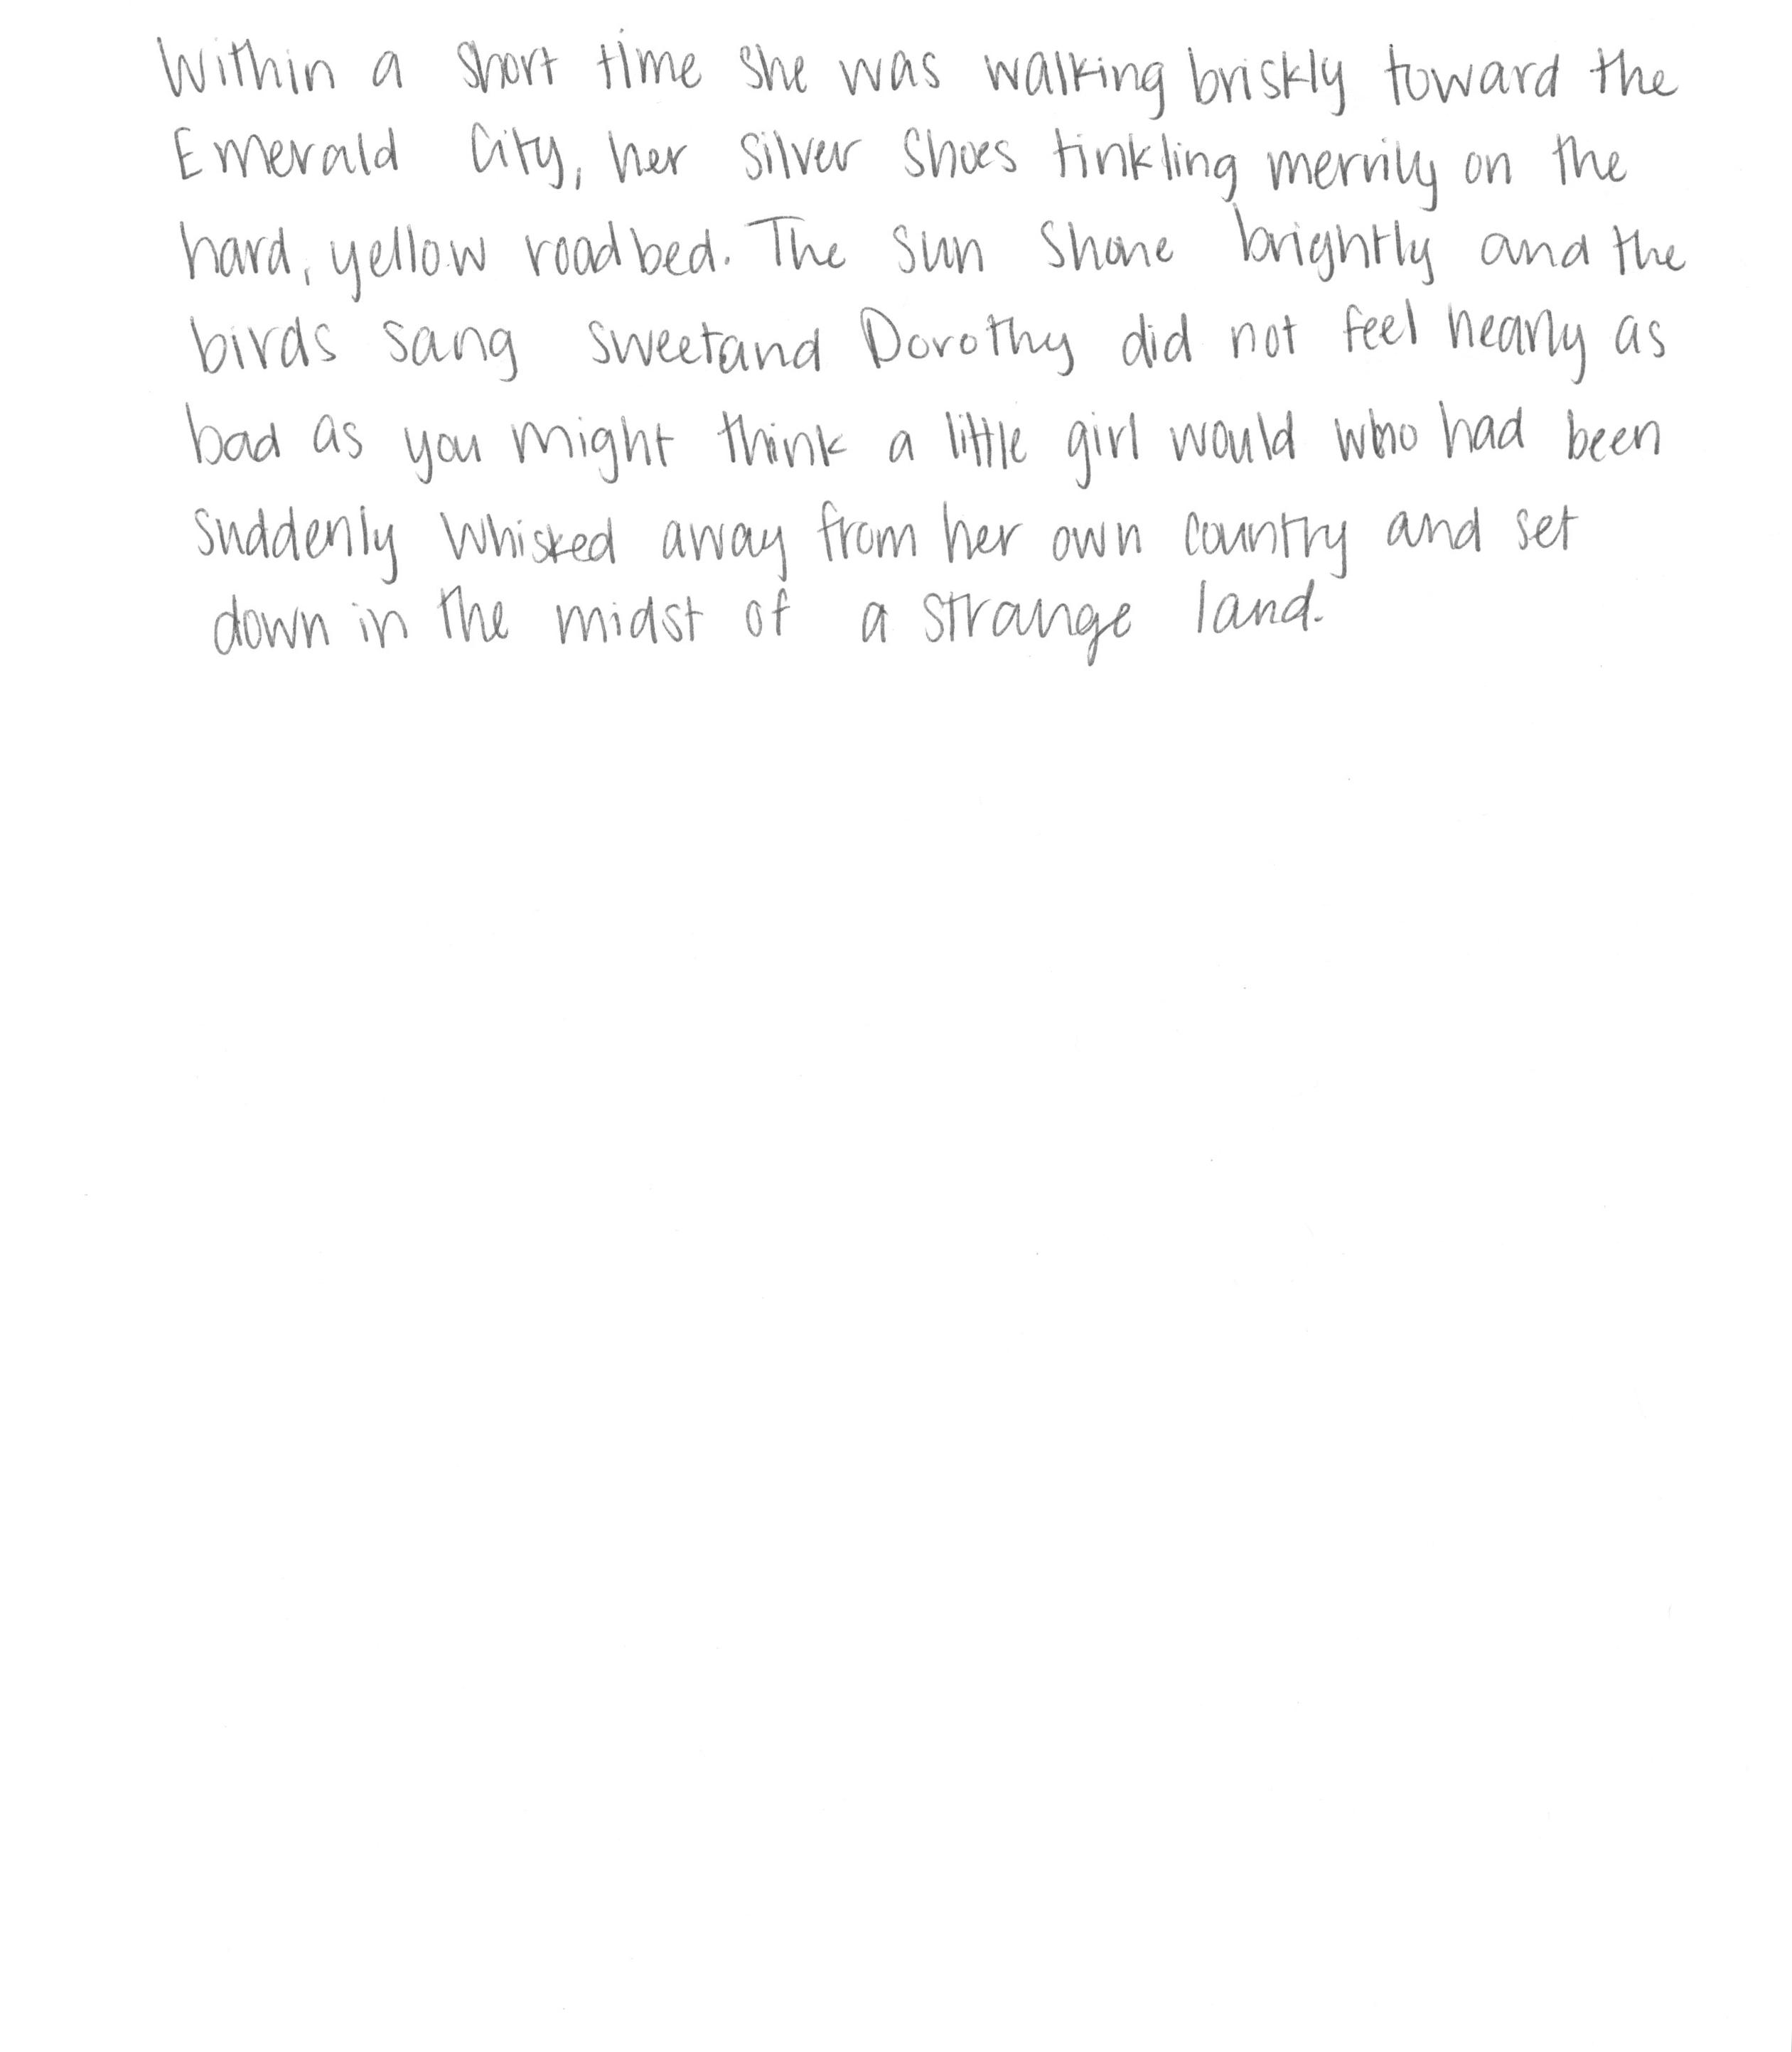 Within a short time she was walking briskly toward the
Emerald City, her silver shoes tinkling merrily on the
hard, yellow roadbed. The sun shone brightly and the
birds sang sweet and Dorothy did not feel nearly as
bad as you might think a little girl would who had been
suddenly whisked away from her own country and set
down in the midst of a strange land.